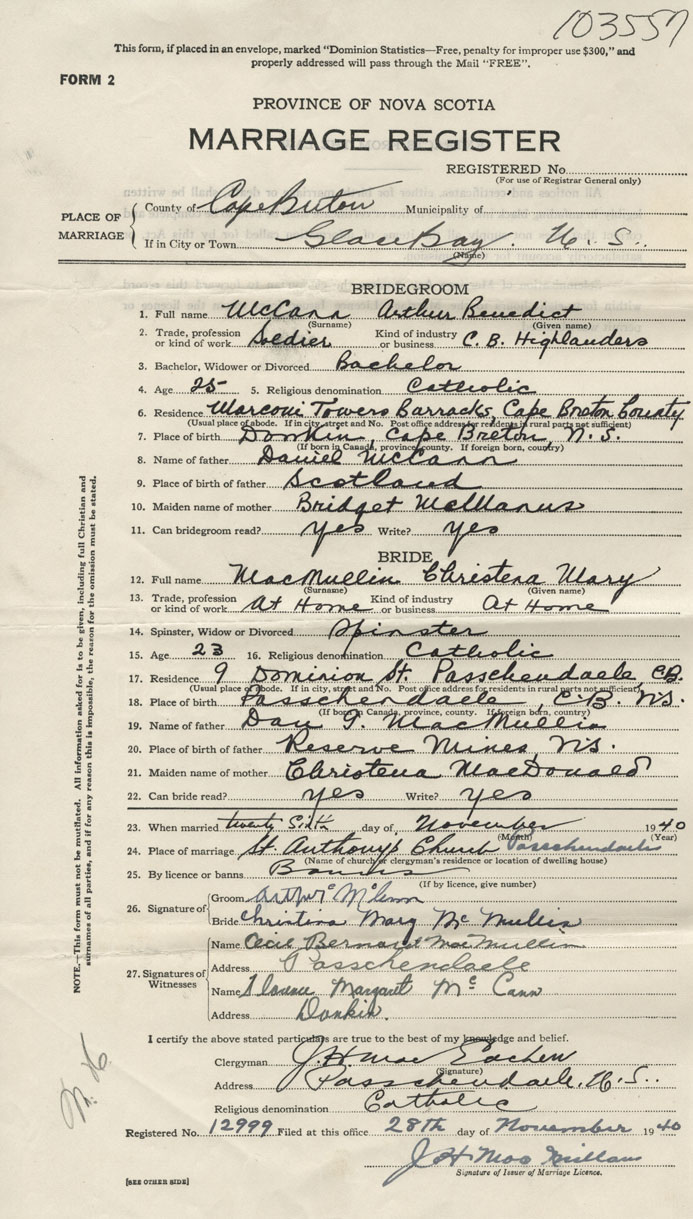 103557
This form, if placed in an envelope, marked "Dominion Statistics—Free, penalty for improper use $300," and
properly addressed will pass through the Mail "FREE".
FORM 2
PROVINCE OF NOVA SCOTIA
MARRIAGE REGISTER
REGISTERED No.
(For use of Registrar General only)
PLACE OF MARRIAGE
County of Cape Breton Municipality of
If in City or Town Glace Bay. N. S.
(Name)
BRIDEGROOM
1. Full name McCann Arthur Benedict
(Surname) (Given name)
2. Trade, profession or kind of work Soldier Kind of industry or business C. B. Highlanders
3. Bachelor, Widower or Divorced Bachelor
4. Age 25 5. Religious denomination Catholic
6. Residence Marconi Towers Barracks, Cape Breton County
(Usual place of abode. If in city, street and No. Post office address for residents in rural parts not sufficient)
7. Place of birth Donkin, Cape Breton, N.S.
(If born in Canada, province, county. If foreign born, country)
8. Name of father Daniel McCann
9. Place of birth of father Scotland
10. Maiden name of mother Bridget McManus
11. Can bridegroom read? yes Write? yes
BRIDE
12. Full name MacMullin Christena Mary
(Surname) (Given name)
13. Trade, profession or kind of work At Home Kind of industry or business At Home
14. Spinster, Widow or Divorced Spinster
15. Age 23 16. Religious denomination Catholic
17. Residence 9 Dominion St. Passchendaele, C.B.
(Usual place of abode. If in city, street and No. Post office address for residents in rural parts not sufficient)
18. Place of birth Passchendaele, C.B. N.S.
(If born in Canada, province, county. If foreign born, country)
19. Name of father Dan MacMullin
20. Place of birth of father Reserve Mines, N.S.
21. Maiden name of mother Christena MacDonald
22. Can bride read? yes Write? yes
23. When married twenty Sixth day of November 1940
(Month) (Year)
24. Place of marriage St. Anthony's Church Passchendaele
(Name of church or clergyman's residence or location of dwelling house)
25. By licence or banns Banns
(If by licence, give number)
26. Signature of
Groom
Bride Christina Mary Mc Mullin
27. Signatures of Witnesses
Name Cecil Bernard MacMullin
Address Passchendaele
Name Florence Margaret Mc Cann
Address Donkin.
I certify the above stated particulars are true to the best of my knowledge and belief.
Clergyman J. H. Mac Eachen
(Signature)
Address Passchendaele, N. S.
Religious denomination Catholic
Registered No. 12999 Filed at this office 28th day of November 1940
J H MacMillan
Signature of Issuer of Marriage Licence.
[SEE OTHER SIDE]
NOTE.—This form must not be mutilated. All information asked for is to be given, including full Christian and
surnames of all parties, and if for any reason this is impossible, the reason for the omission must be stated.